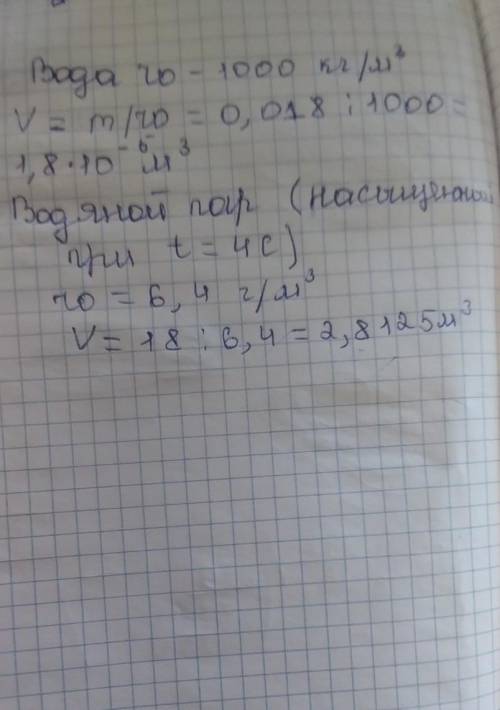 Вода ro - 1000 кг/м³
V = m/ro = 0,018 : 1000 =
1,8·10⁻⁵ м³
Водяной пар (насыщенной
при t = 4С)
ro = 6,4 г/м³
V = 18 : 6,4 = 2,8125м³